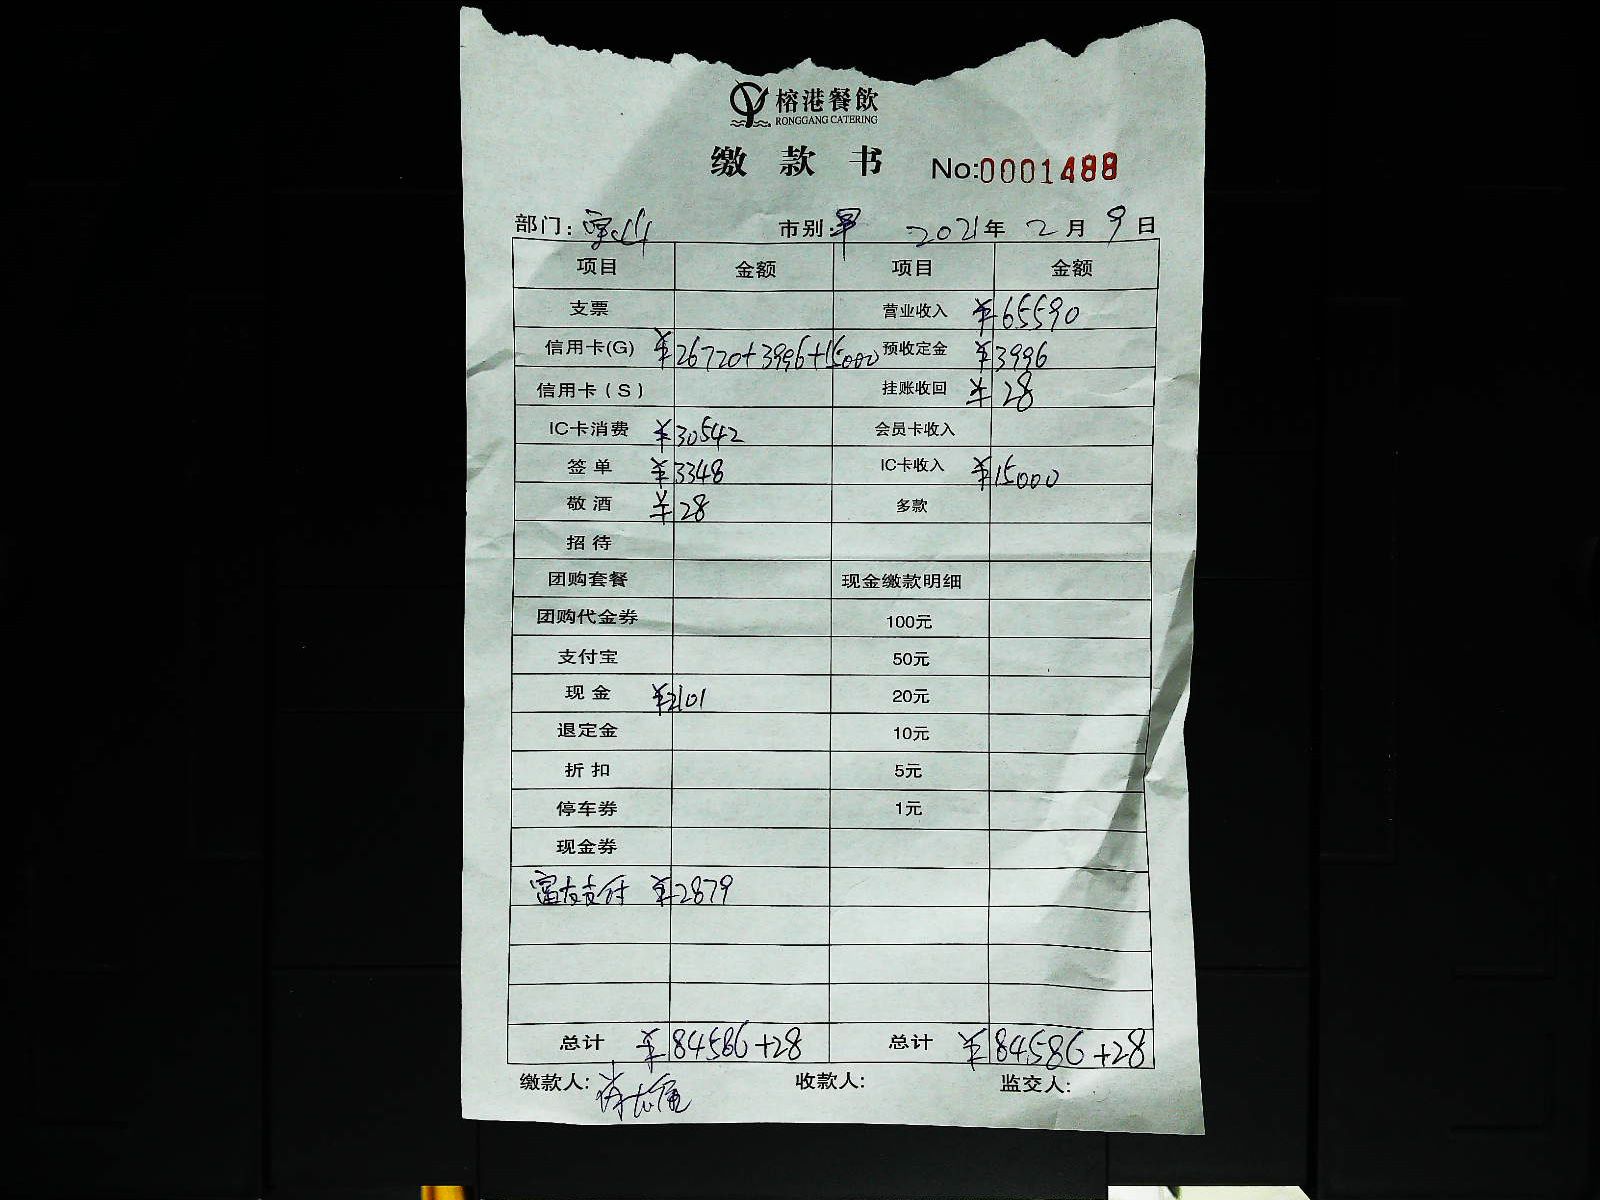 榕港餐飲
RONGGANG CATERING
缴 款 书 No:0001488
部门: 市别:早 2021年 2月 9日
项目 金额 项目 金额
支票 营业收入 ¥65590
信用卡(G) ¥26720+3996+15000 预收定金 ¥3996
信用卡(S) 挂账收回 ¥28
IC卡消费 ¥30542 会员卡收入
签单 ¥3348 IC卡收入 ¥15000
敬酒 ¥28 多款
招待
团购套餐 现金缴款明细
团购代金券 100元
支付宝 50元
现金 ¥2101 20元
退定金 10元
折扣 5元
停车券 1元
现金券
富友支付 ¥2879
总计 ¥84586+28 总计 ¥84586+28
缴款人: 收款人: 监交人: